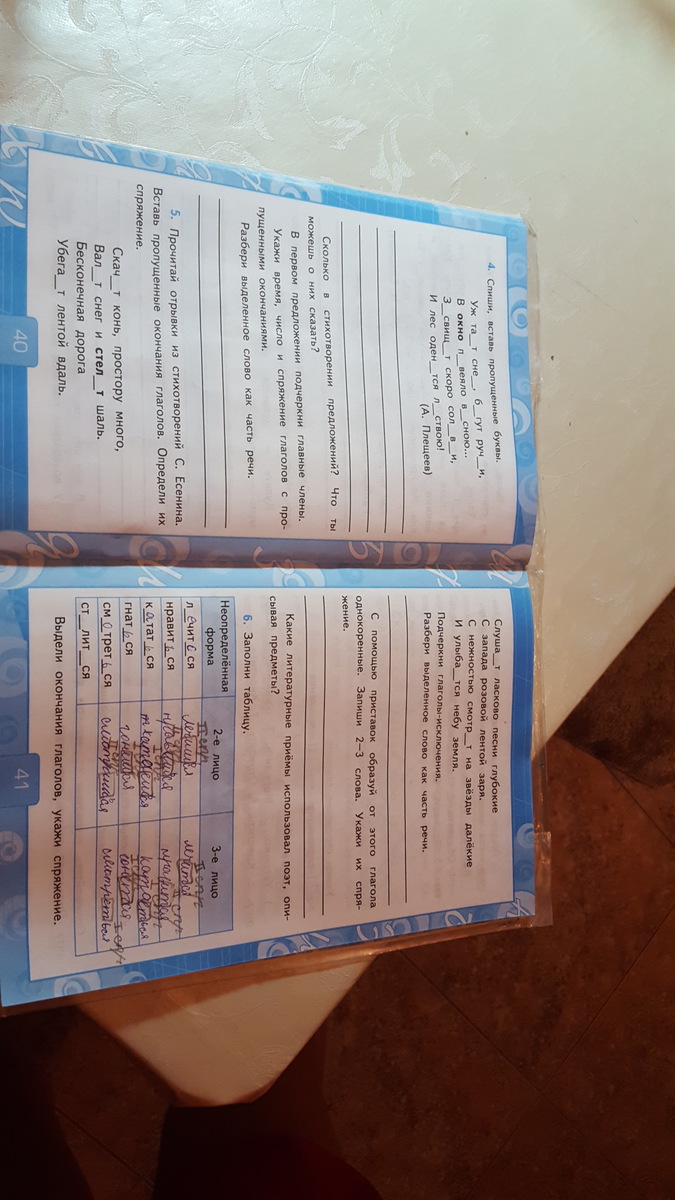 4. Спиши, вставь пропущенные буквы.
Уж та__т сне__, б__гут руч__и,
В окно п__веяло в__сною...
З__свищ__т скоро сол__в__и,
И лес оден__тся л__ствою!
(А. Плещеев)
Сколько в стихотворении предложений? Что ты
можешь о них сказать?
В первом предложении подчеркни главные члены.
Укажи время, число и спряжение глаголов с про-
пущенными окончаниями.
Разбери выделенное слово как часть речи.
5. Прочитай отрывки из стихотворений С. Есенина.
Вставь пропущенные окончания глаголов. Определи их
спряжение.
Скач__т конь, простору много,
Вал__т снег и стел__т шаль.
Бесконечная дорога
Убега__т лентой вдаль.
40
Слуша__т ласково песни глубокие
С запада розовой лентой заря.
С нежностью смотр__т на звёзды далёкие
И улыба__тся небу земля.
Подчеркни глаголы-исключения.
Разбери выделенное слово как часть речи.
С помощью приставок образуй от этого глагола
однокоренные. Запиши 2—3 слова. Укажи их спря-
жение.
Какие литературные приёмы использовал поэт, опи-
сывая предметы?
6. Заполни таблицу.
Неопределённая форма 2-е лицо 3-е лицо
л е чит ь ся лечишься II спр лечится II спр
нравит ь ся нравишься нравится II спр
к а тат ь ся катаешься I спр катается
гнат ь ся гонишься гонится
см о трет ь ся смотришься
ст__лит__ся
Выдели окончания глаголов, укажи спряжение.
41